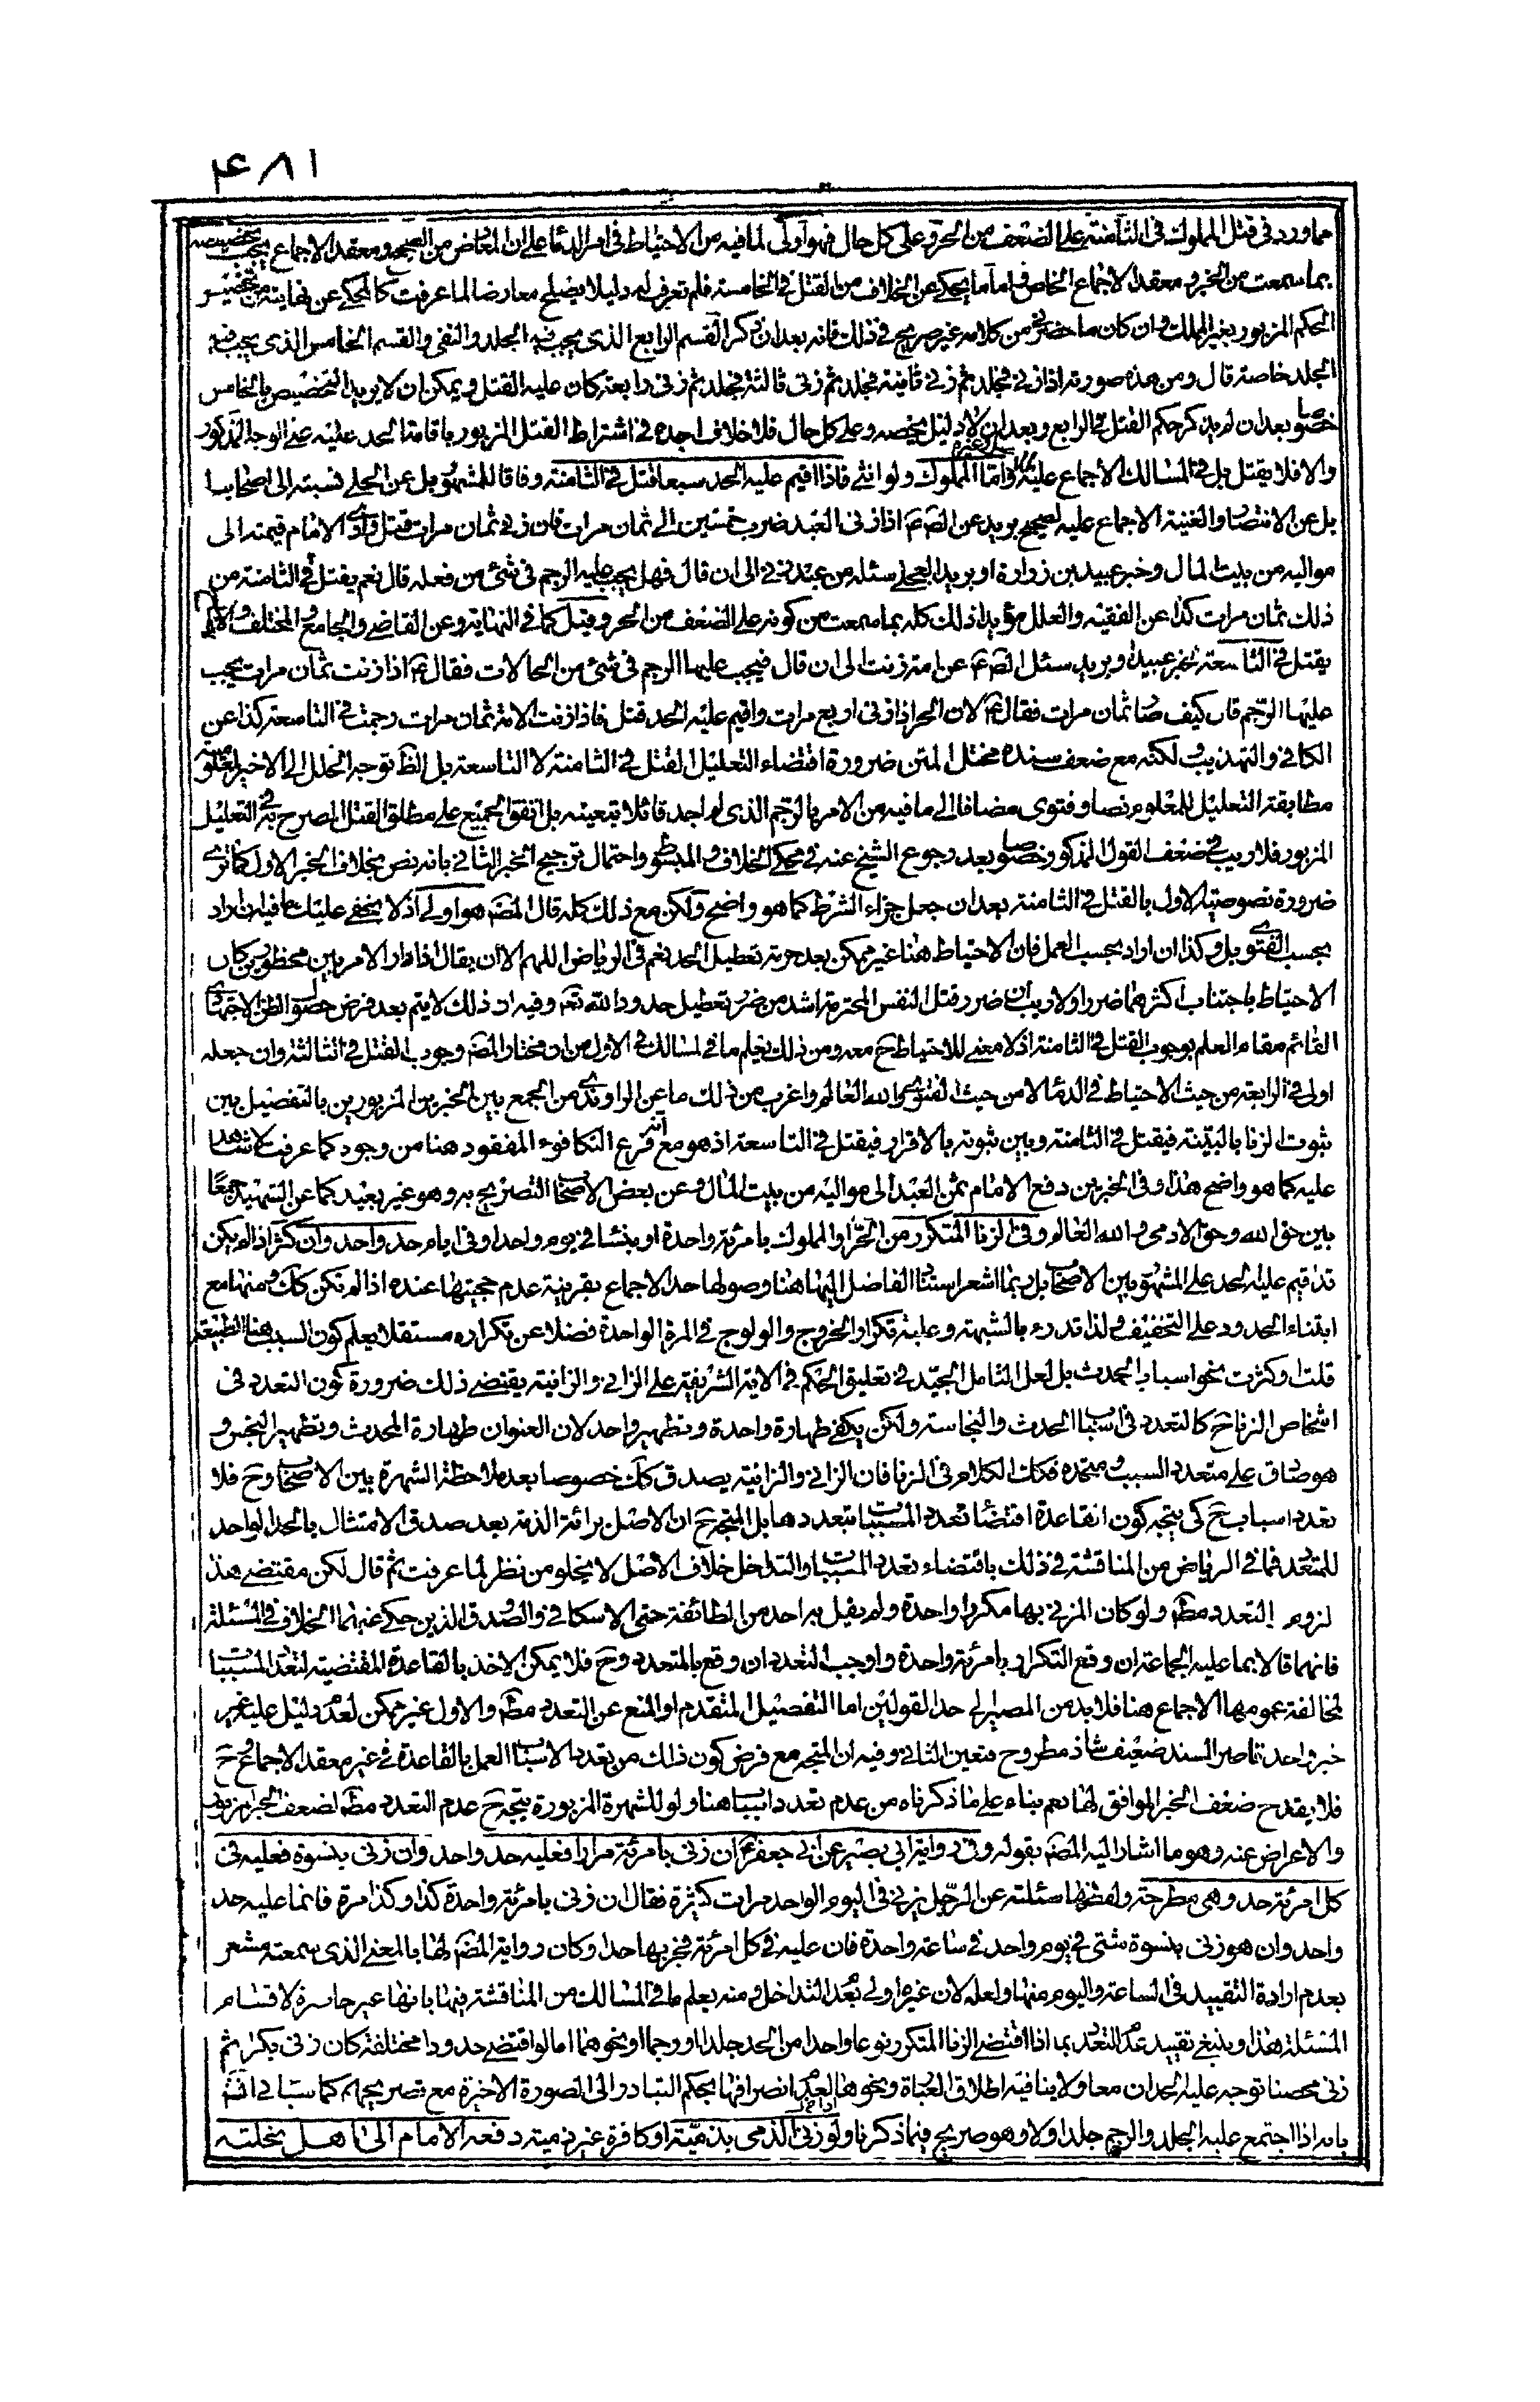 ۴۸۱
مما ورد فى قتل المملوك فى الثامنة على الضعف من الحر وعلى كل حال فهو أولى لما فيه من الاحتياط فى امر الدماء على ان المعارض من الصحيح ومعقد الاجماع يجب تخصيصه
بما سمعت من الخبر ومعقد الاجماع الخاص واما ما يحكى عن الخلاف من القتل فى الخامسة فلم نعرف له دليلا يصلح معارضا لما عرفت كالمحكى عن نهايته من تخصيص
الحكم المزبور بغير المملك وان كان ما حضرنى من كلامه غير صريح فى ذلك فانه بعد ان ذكر القسم الرابع الذى يجب فيه الجلد والنفى والقسم الخامس الذى يجب فيه
الجلد خاصة قال ومن هذه صورته اذا زنى فجلد ثم زنى ثانية فجلد ثم زنى ثالثة فجلد ثم زنى رابعة كان عليه القتل ويمكن ان لا يريد التخصيص بالخامس
خصوصا بعد ان لم يذكر حكم القتل فى الرابع وبعد ان لا دليل يخصه وعلى كل حال فلا خلاف اجده فى اشتراط القتل المزبور باقامة الحد عليه على الوجه المذكور
والا فلا يقتل بل فى المسالك الاجماع عليه واما المملوك ولو انثى فاذا اقيم عليه الحد سبعا قتل فى الثامنة وفاقا للمشهور بل عن الحلى نسبته الى اصحابنا
بل عن الانتصار والغنية الاجماع عليه لصحيح بريد عن الصم ع اذا زنى العبد ضرب خمسين الى ثمان مرات فان زنى ثمان مرات قتل وادى الامام قيمته الى
مواليه من بيت المال وخبر عبيد بن زرارة او بريد العجلى سئله من عبد زنى الى ان قال فهل يجب عليه الرجم فى شئ من فعله قال نعم يقتل فى الثامنة من
ذلك ثمان مرات كذا عن الفقيه والعلل مؤيدا ذلك كله بما سمعت من كونه على الضعف من الحر وقيل كما فى النهاية وعن القاضى والجامع والمختلف
يقتل فى التاسعة لخبر عبيد او بريد سئل الصم ع عن امة زنت الى ان قال فيجب عليها الرجم فى شئ من الحالات فقال ع اذا زنت ثمان مرات يجب
عليها الرجم قال كيف صا ثمان مرات فقال ع لان الحر اذا زنى اربع مرات واقيم عليه الحد قتل فاذا زنت الامة ثمان مرات رجمت فى التاسعة كذا عن
الكافى والتهذيب لكنه مع ضعف سنده مختل المتن ضرورة اقتضاء التعليل القتل فى الثامنة لا التاسعة بل الظ توجه الخلل الى الاخير لمعلومية
مطابقة التعليل للمعلوم نصا وفتوى مضافا الى ما فيه من الامر بالرجم الذى لم اجد قائلا بتعينه بل اتفق الجميع على مطلق القتل المصرح به فى التعليل
المزبور فلا ريب فى ضعف القول المذكور خصوصا بعد رجوع الشيخ عنه فى محكى الخلاف والمبسوط واحتمال ترجيح الخبر الثانى بانه نص بخلاف الخبر الاول كما ترى
ضرورة نصوصية الاول بالقتل فى الثامنة بعد ان جعل جزاء الشرط كما هو واضح ولكن مع ذلك كله قال المصم هو اولى اذ لا يخفى عليك ما فيه ان اراد
بحسب الفتوى بل وكذا ان اراد بحسب العمل فان الاحتياط هنا غير ممكن بعد حرمة تعطيل الحد نعم فى الرياض اللهم الا ان يقال اذا دار الامر بين محظورين كان
الاحتياط باجتناب اكثرهما ضررا ولا ريب ان ضرر قتل النفس المحترمة اشد من ضرر تعطيل حدود الله تعم وفيه ان ذلك لا يتم بعد فرض حصول الظن الاجتهادى
القائم مقام العلم بوجوب القتل فى الثامنة اذ لا معنى للاحتياط ح معه ومن ذلك يعلم ما فى المسالك فى الاول من ان مختار المصم وجوب القتل فى الثالثة وان جعله
اولى فى الرابعة من حيث الاحتياط فى الدماء لا من حيث الفتوى والله العالم واغرب من ذلك ما عن الراوندى من الجمع بين الخبرين المزبورين بالتفصيل بين
ثبوت الزنا بالبينة فيقتل فى الثامنة وبين ثبوته بالاقرار فيقتل فى التاسعة اذ هو مع انه فرع التكافوء المفقود هنا من وجود كما عرفت لا شاهد
عليه كما هو واضح هذا وفى الخبرين دفع الامام ثمن العبد الى مواليه من بيت المال وعن بعض الاصحا التصريح به وهو غير بعيد كما عن الشهيد جمعا
بين حق الله وحق الادمى والله العالم وفى الزنا المتكرر من الحر او المملوك بامرئة واحدة او بنسا فى يوم واحد او فى ايام حد واحد وان كثر اذا لم يكن
قد اقيم عليه الحد على المشهور بين الاصحا بل ربما اشعر استنا الفاضل اليها هنا وصولها حد الاجماع بقرينة عدم حجيتها عنده اذا لم تكن كك ومنها مع
ابتناء الحدود على التخفيف ولذا تدرء بالشبهة وغلبة تكرار الخروج والولوج فى المرة الواحدة فضلا عن تكراره مستقلا يعلم كون السبب هنا الطبيعة
قلت او كثرت نحو اسباب الحدث بل لعل التامل الجيد فى تعليق الحكم فى الاية الشريفة على الزانى والزانية يقتضى ذلك ضرورة كون التعدد فى
اشخاص الزنا ح كالتعدد فى اسبا الحدث والنجاسة ولكن يكفى طهارة واحدة وتطهير واحد لان العنوان طهارة المحدث وتطهير النجس و
هو صادق على متعدد السبب ومتحده فكك الكلام فى الزنا فان الزانى والزانية يصدق كك خصوصا بعد ملاحظة الشهرة بين الاصحا وح فلا
تعدد اسباب ح كى يتجه كون القاعدة اقتضا تعدد المسببا متعددها بل المتجه ح ان الاصل برائة الذمة بعد صدق الامتثال بالحد الواحد
للمتعدد فما فى الرياض من المناقشة فى ذلك باقتضاء تعدد المسببا والتداخل خلاف الاصل لا يخلو من نظر لما عرفت ثم قال لكن مقتضى هذا
لزوم التعدد مطم ولو كان المزنى بها مكررا واحدة ولم يقل به احد من الطائفة حتى الاسكافى والصدوق الذين حكى عنهما الخلاف فى المسئلة
فانهما قالا بما عليه الجماعة ان وقع التكرار بامرئة واحدة واوجب التعدد ان وقع بالمتعدد وح فلا يمكن الاخذ بالقاعدة المقتضية لتعدد المسببات
لمخالفة عمومها الاجماع هنا فلا بد من المصير الى احد القولين اما التفصيل المتقدم او المنع عن التعدد مطم والاول غير ممكن لعدم دليل عليه غير
خبر واحد قاصر السند ضعيف شاذ مطروح فتعين الثانى وفيه ان المتجه مع فرض كون ذلك من تعدد الاسبا العمل بالقاعدة فى غير معقد الاجماع ح
فلا يقدح ضعف الخبر الموافق لها نعم بناء على ما ذكرناه من عدم تعدد اسبا هنا ولو للشهرة المزبورة يتجه ح عدم التعدد مطم لضعف الخبر المزبور
والاعراض عنه وهو ما اشار اليه المصم بقوله وفى رواية ابى بصير عن ابى جعفر ع ان زنى بامرئة مرارا فعليه حد واحد وان زنى بنسوة فعليه فى
كل امرئة حد وهى مطرحة ولفظها سئلته عن الرجل يزنى فى اليوم الواحد مرات كثيرة فقال ان زنى بامرئة واحدة كذا وكذا مرة فانما عليه حد
واحد وان هو زنى بنسوة شتى فى يوم واحد فى ساعة واحدة فان عليه فى كل امرئة فجر بها حدا وكان رواية المصم لها بالمعنى الذى سمعته مشعر
بعدم ارادة التقييد فى الساعة واليوم منها ولعله لان غيره اولى بعدم التداخل ومنه يعلم ما فى المسالك من المناقشة فيها بانها غير حاصرة لاقسام
المسئلة هذا وينبغى تقييد عدم التعدد بما اذا اقتضى الزنا المتكرر نوعا واحدا من الحد جلدا او رجما او نحوهما اما لو اقتضى حدودا مختلفة كان زنى بكرا ثم
زنى محصنا توجه عليه الحدان معا ولا ينافيه اطلاق العباة ونحوها لعدم انصرافها بحكم التبادر الى الصورة الاخيرة مع تصريحهم كما سياتى انشم
بانه اذا اجتمع عليه الجلد والرجم جلد اولا وهو صريح فيما ذكرنا ولو زنى الذمى بذمية او كافرة غير ذمية دفعه الامام الى اهل نحلته